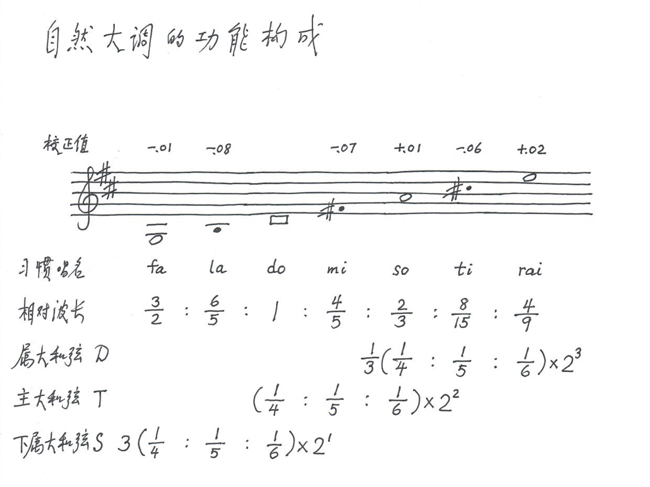 自然大调的功能构成
校正值 -.01 -.08 -.07 +.01 -.06 +.02
习惯唱名 fa la do mi so ti rai
相对波长 3/2 : 6/5 : 1 : 4/5 : 2/3 : 8/15 : 4/9
属大和弦 D 1/3(1/4 : 1/5 : 1/6)×2³
主大和弦 T (1/4 : 1/5 : 1/6)×2²
下属大和弦 S 3(1/4 : 1/5 : 1/6)×2¹